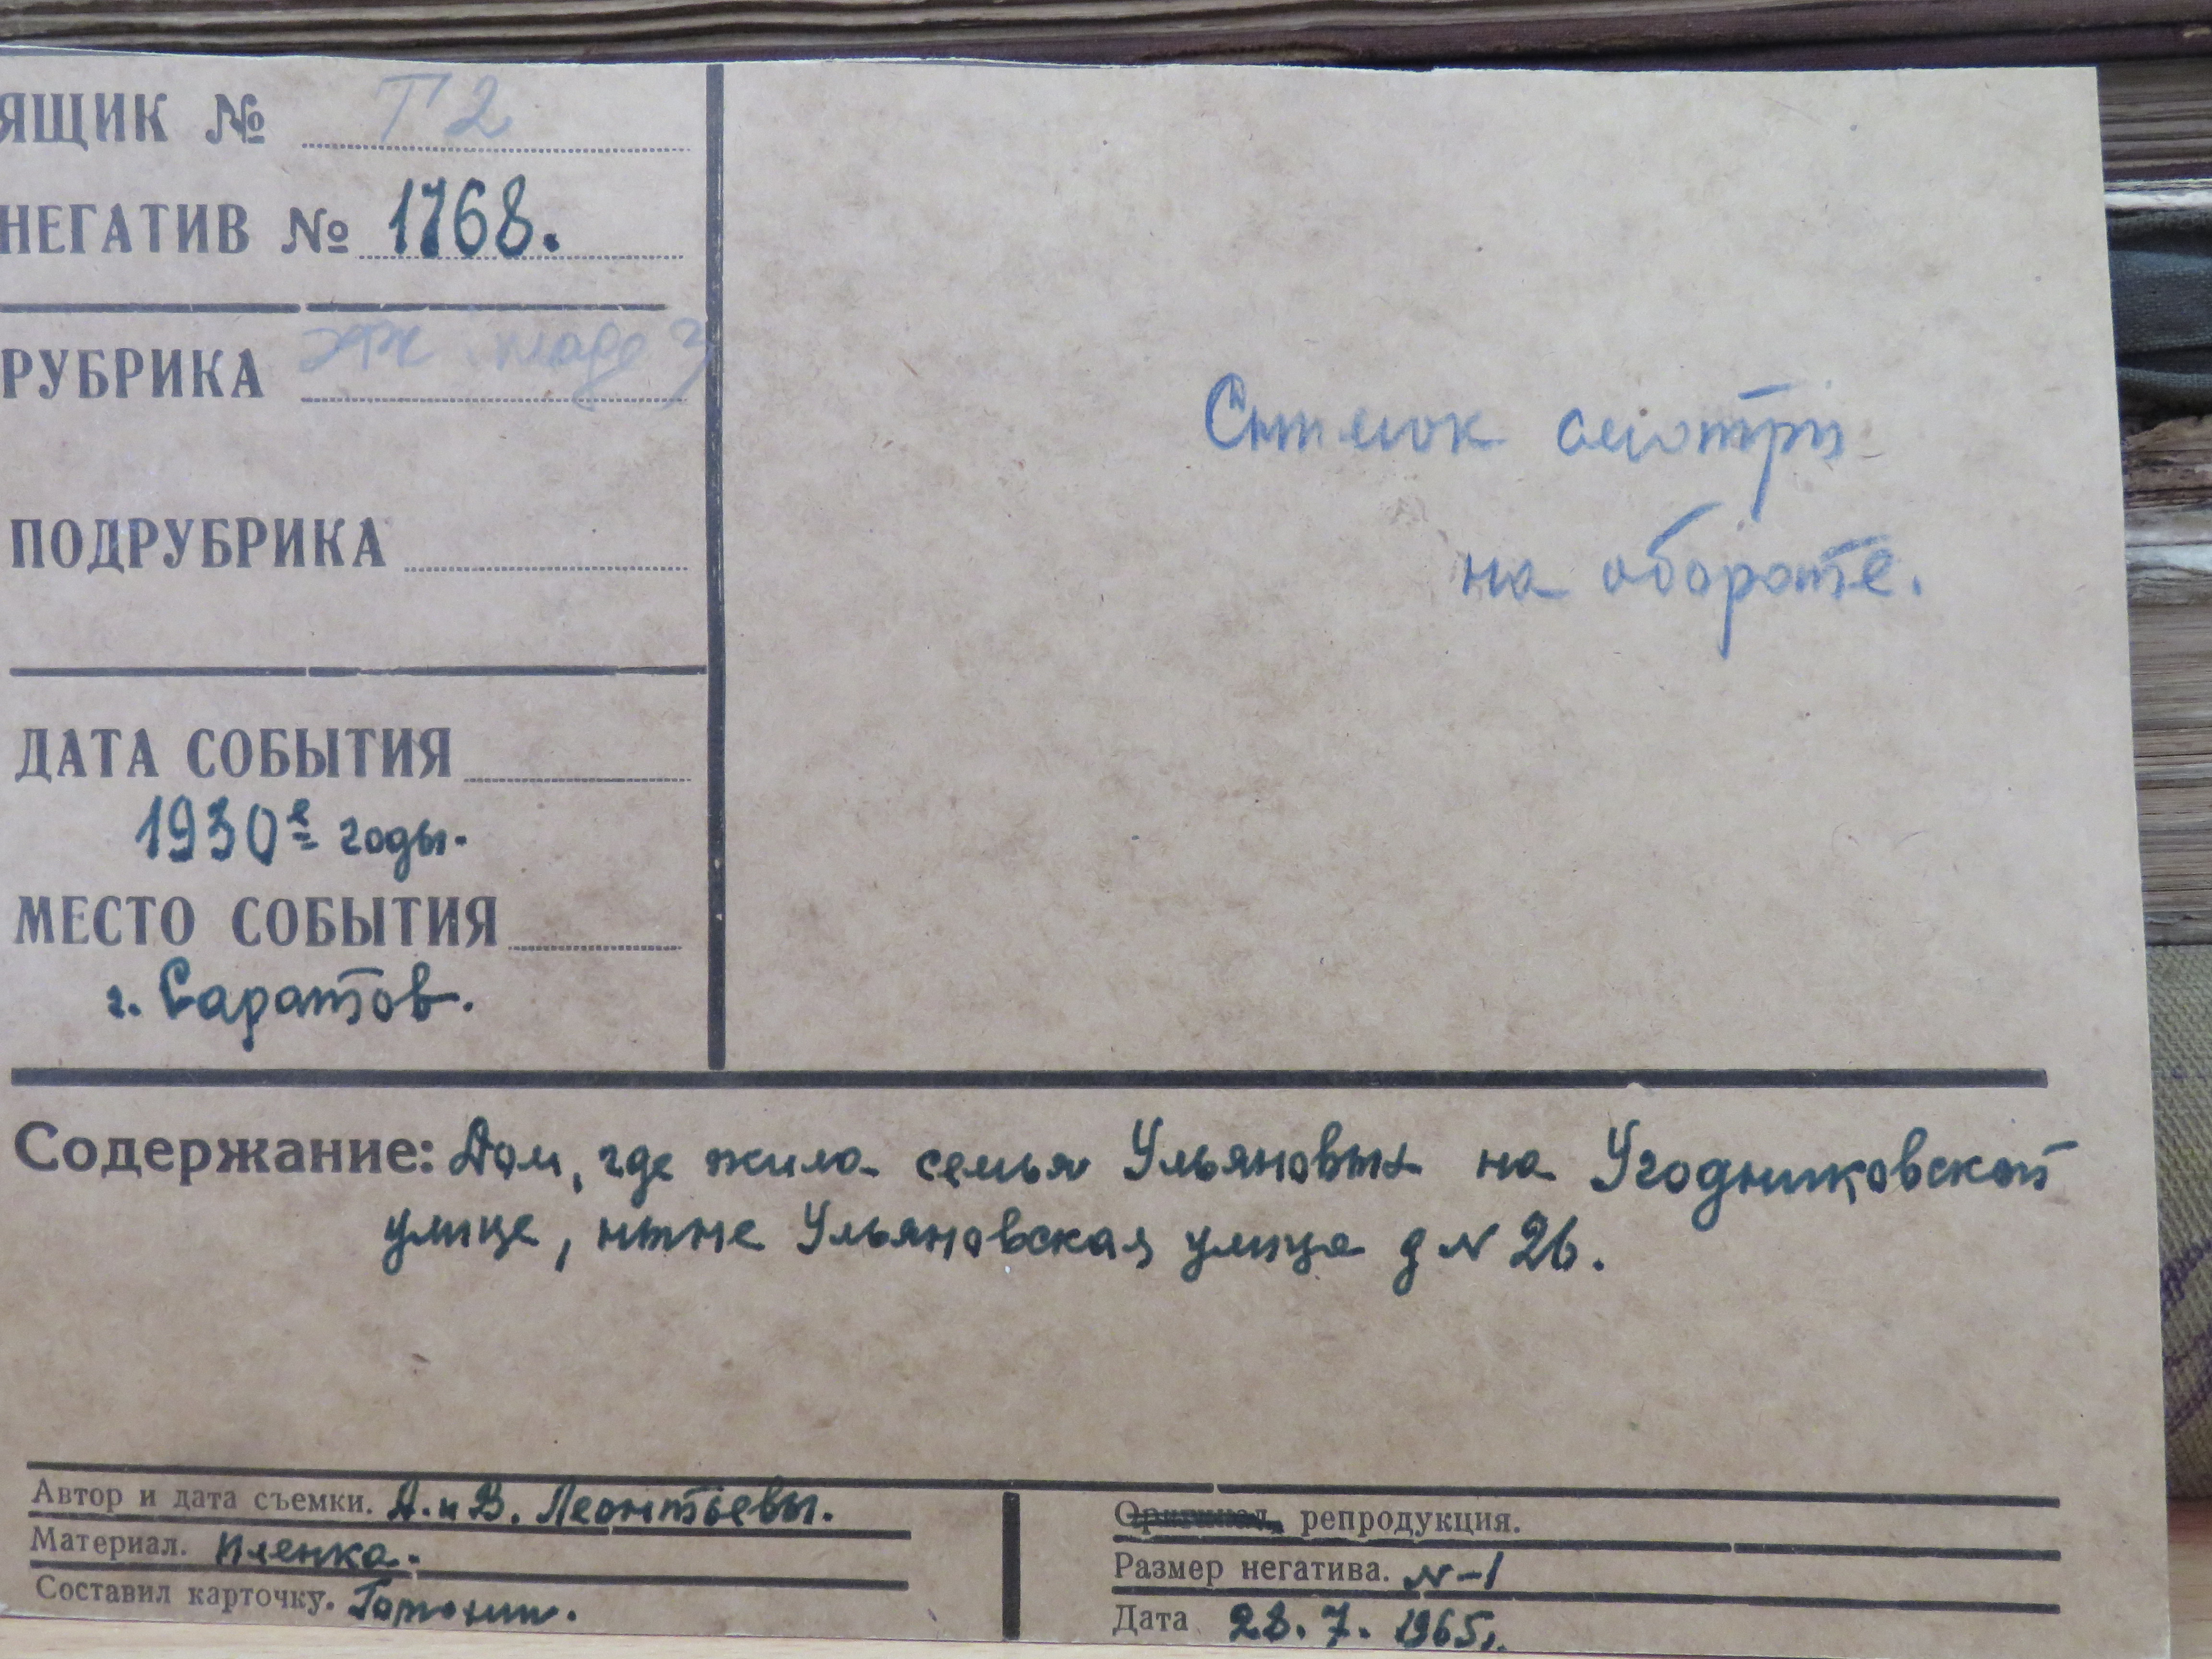 ЯЩИК № Т2
НЕГАТИВ № 1768.
РУБРИКА
ПОДРУБРИКА
ДАТА СОБЫТИЯ
1930е годы.
МЕСТО СОБЫТИЯ
г. Саратов.
Снимок смотри
на обороте.
Содержание: Дом, где жила семья Ульяновых на Угодниковской
улице, ныне Ульяновская улица д N 26.
Автор и дата съемки. А. и В. Леонтьевы.
Материал. пленка.
Составил карточку.
Оригинал, репродукция.
Размер негатива. N-1
Дата 28. 7. 1965г.